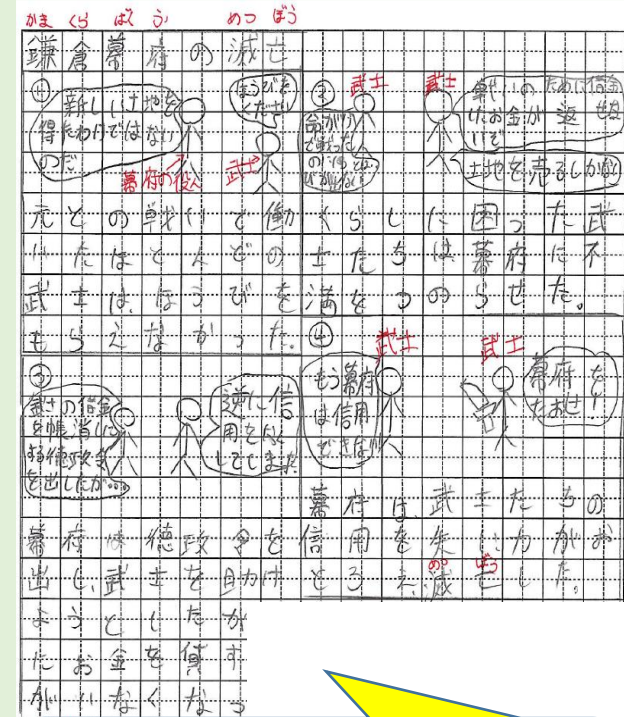 かまくらばくふ めつぼう
鎌倉幕府の滅亡
①
新しい土地を
得たわけではない
のだ
ほうびを
ください
幕府の役人
武士
元との戦いで働
いたほとんどの
武士は、ほうびを
もらえなかった。
②
武士
命がけ
で戦った
のに
武士
戦いのために借金
したお金が返せな
いぞ
土地を売るしかない
くらしに困った武
士たちは幕府に不
満をつのらせた。
③
武士の借金
を帳消しに
する徳政令
を出したが…
逆に信
用をなく
してしまった
幕府は徳政令を
出し、武士を助け
ようとしたが
たお金を貸す
がいなくなっ
④
武士
もう幕府
は信用
できない!!
武士
幕府を
たおせ!
幕府は、武士たちの
信用を失い力がお
とろえ、滅亡した。
めつぼう